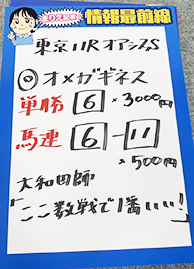 まりえ記者の
情報最前線
東京11R オアシスS
◎オメガギネス
単勝 6 × 3000円
馬連 6-11
× 500円
大和田師
「ここ数戦で1番いい!」